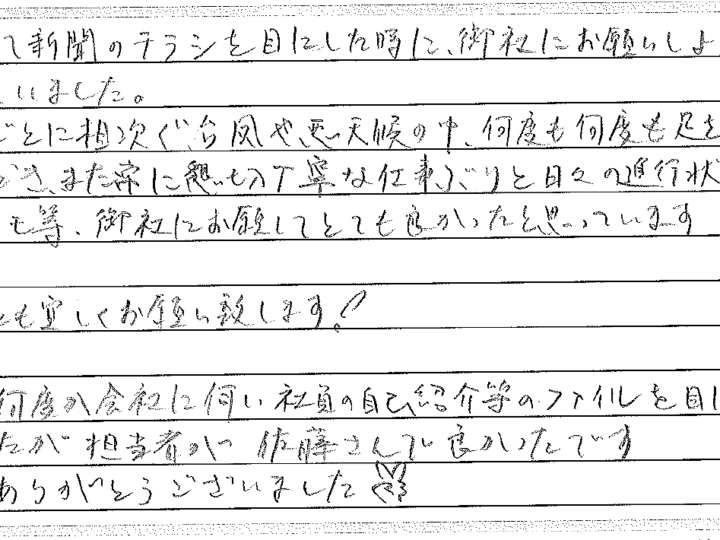 て新聞のチラシを目にした時に、御社にお願いしよ
いました。
ごとに相次ぐ、台風や、悪天候の中、何度も何度も足を
でき、また常に懇切丁寧な仕事ぶりと日々の進行状
も等、御社にお願してとても良かったと思っています
とも宜しくお願い致します!
何度か会社に伺い社員の自己紹介等のファイルを目に
たが担当者が佐藤さんで良かったです
ありがとうございました